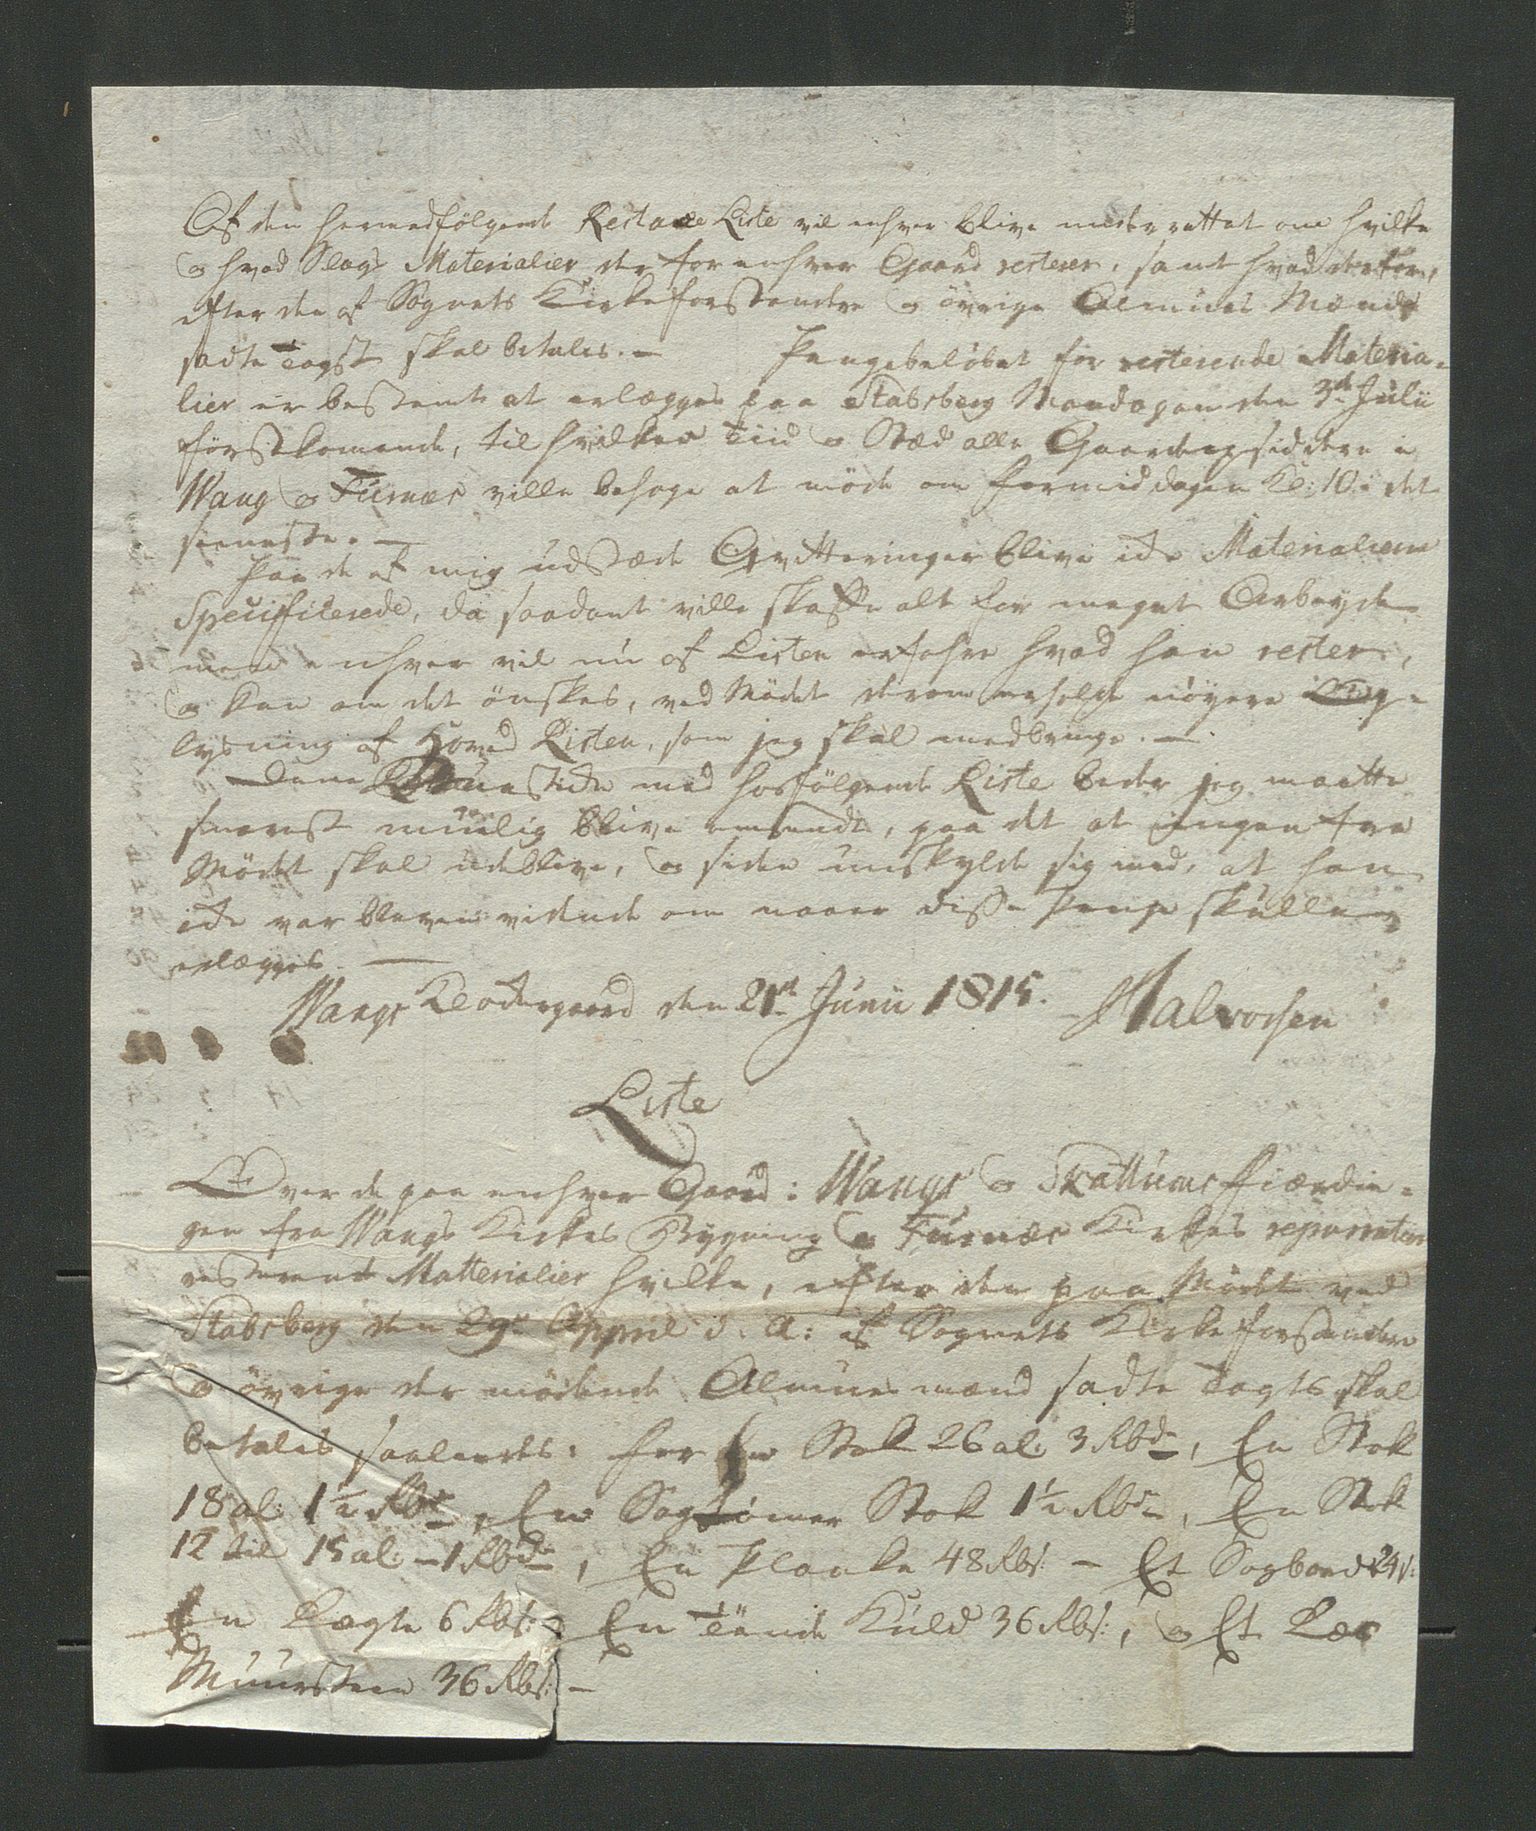 Af den hermedfölgende Restance Liste vil enhver blive underrettet om hvilke
og hvad Slags Materialier der for enhver Gaard resterer, samt hvad derfor,
efter den af Sognets Kirkeforstandere og övrige Almues Mænd
sadte Taxst skal betales. – Pengebelöbet for resterende Materia-
lier er bestemt at erlægges paa Stabsberg Mandagen den 3die Julii
förstkomende, til hvilken Tiid og Stæd alle Gaardopsiddere i
Wang og Furnæs ville behage at möde om formiddagen Kl: 10 i det
seeneste. –
Paa de af mig udstæde Qvitteringer blive icke Materialierne
Specificerede, da saadant ville skaffe alt for meget Arbeyde
men enhver vil nu af Listen erfahre hvad han rester,
og kan om det önskes, ved Mödet derom erholde nöyere Op-
lysning af Hoved Listen, som jeg skal medbringe. –
Denne Bekiendtgiörelse med hosfölgende Liste beder jeg maatte
snarest muelig blive omsendt, paa det at ingen fra
Mödet skal udeblive, og siden undskylde sig med, at han
icke var bleven vidende om naar disse Penge skulle
erlægges. –
Wangs Klockergaard den 21de Junii 1815. Halvorsen
Liste
Over de paa enhver Gaard i Wangs og Skattums Fiærdin-
gen fra Wangs Kirkes Bygning og Furnæs Kirkes reparation
resterende Matterialier hvilke, efter den paa Mödet ved
Stabsberg den 29de Appril d. A: af Sognets Kirkeforstandere
og övrige der mödende Almues mænd sadte Taxts skal
betales saaledes: for En Stok 26 al: 3 Rbdr, En Stok
18 al: 1½ Rbdr, En Sagtömmer Stok 1½ Rbdr, En Stok
12 til 15 al: – 1 Rbdr, En Planke 48 Rbs: – Et Sagbord 24 s:
En Lægte 6 Rbs: – En Tönde Kuld 36 Rbs:, og Et Læs
Muursteen 36 Rbs: –